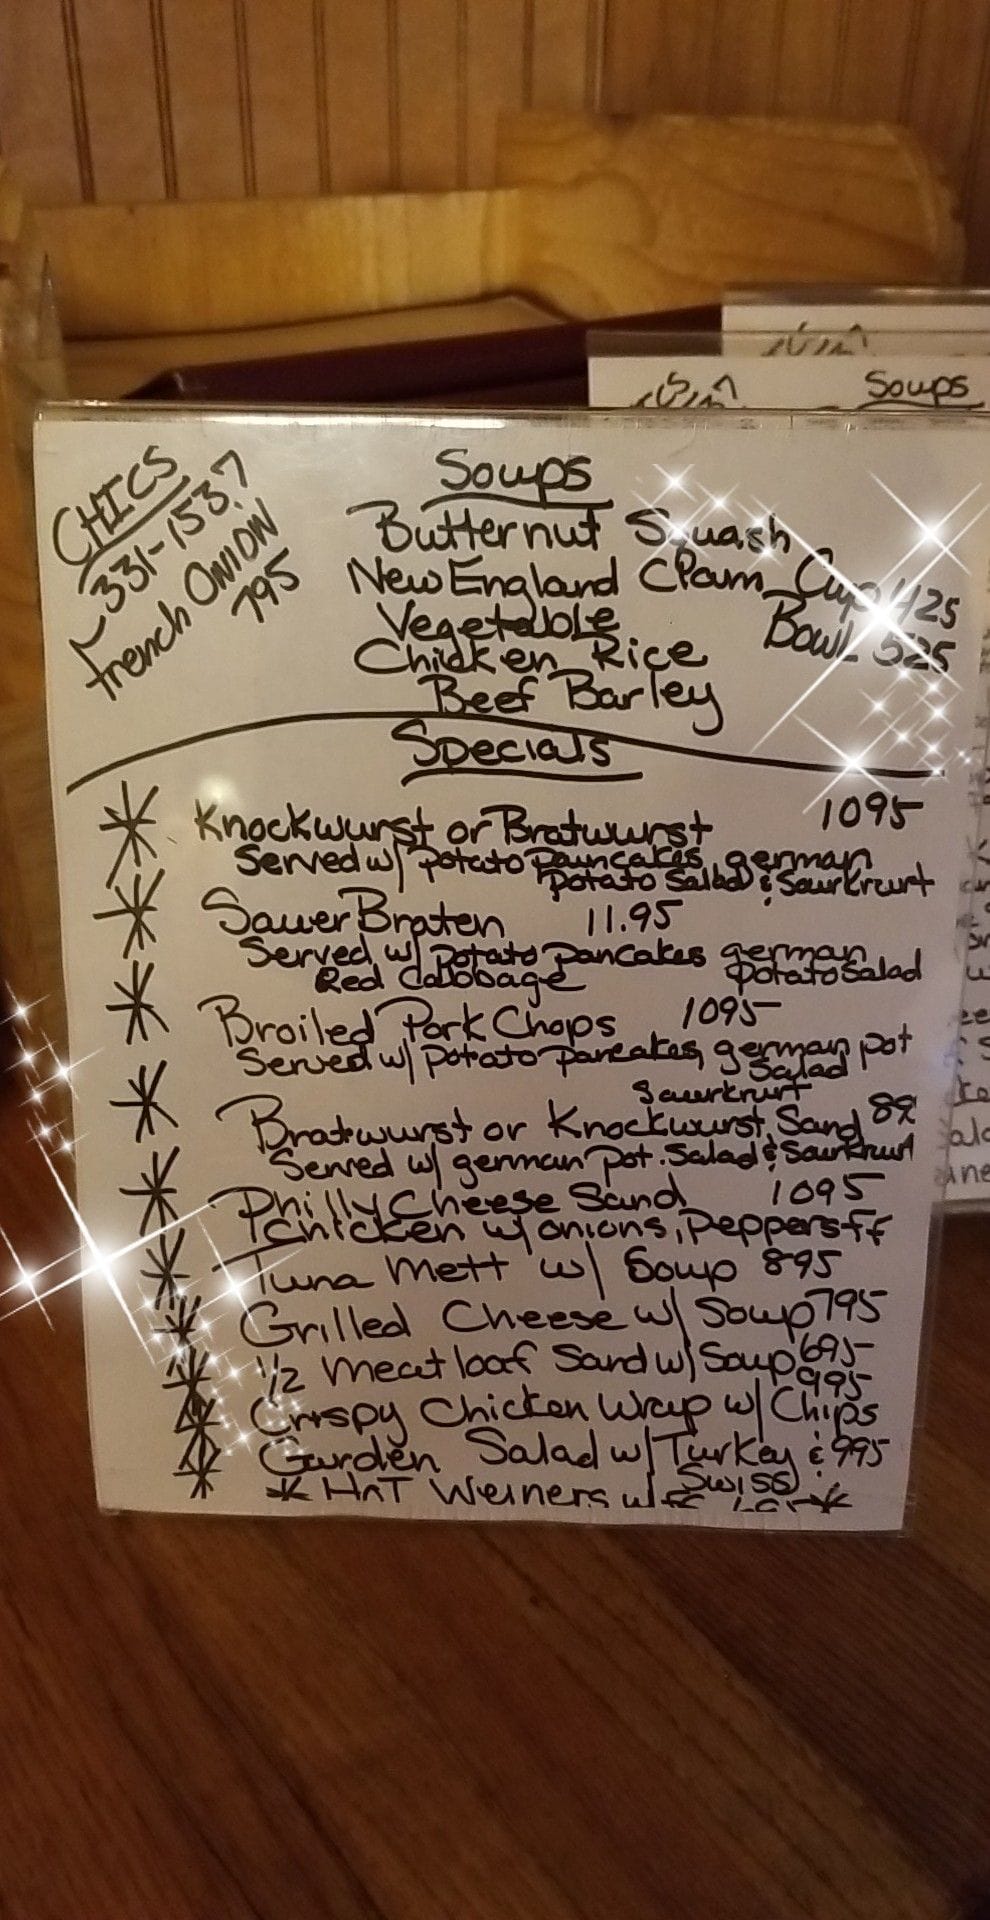 CHICS
331-1537
french ONION
795
Soups
Butternut Squash
New England Clam
Vegetable
Chicken Rice
Beef Barley
Cup 425
Bowl 525
Specials
Knockwurst or Bratwurst 1095
Served w/ Potato Pauncakes german
Potato Salad & Saurkrurt
SauerBraten 11.95
Served w/ Potato Pancakes german
Red Cabbage Potato Salad
Broiled Pork Chops 1095
Served w/ Potato Pancakes, german pot
Salad
Saurkrurt
Bratwurst or Knockwurst Sand
Served w/ german Pot. Salad & Saurkrurt
Philly Cheese Sand 1095
Chicken w/ onions, Peppers ff
Tuna Mett w/ Soup 895
Grilled Cheese w/ Soup 795
1/2 Meatloaf Sand w/ Soup 695
995
Crispy Chicken Wrap w/ Chips
Garden Salad w/ Turkey & 995
Swiss
Hot Weiners w/
Soups